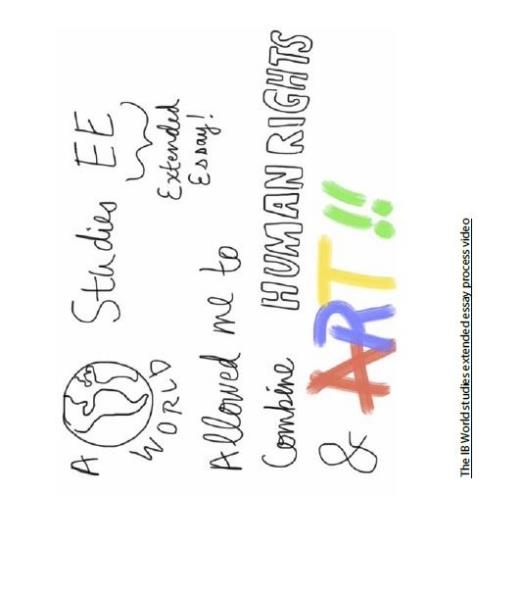 A WORLD Studies EE
Extended
Essay!
Allowed me to
Combine HUMAN RIGHTS
& ART!!
The IB World studies extended essay process video